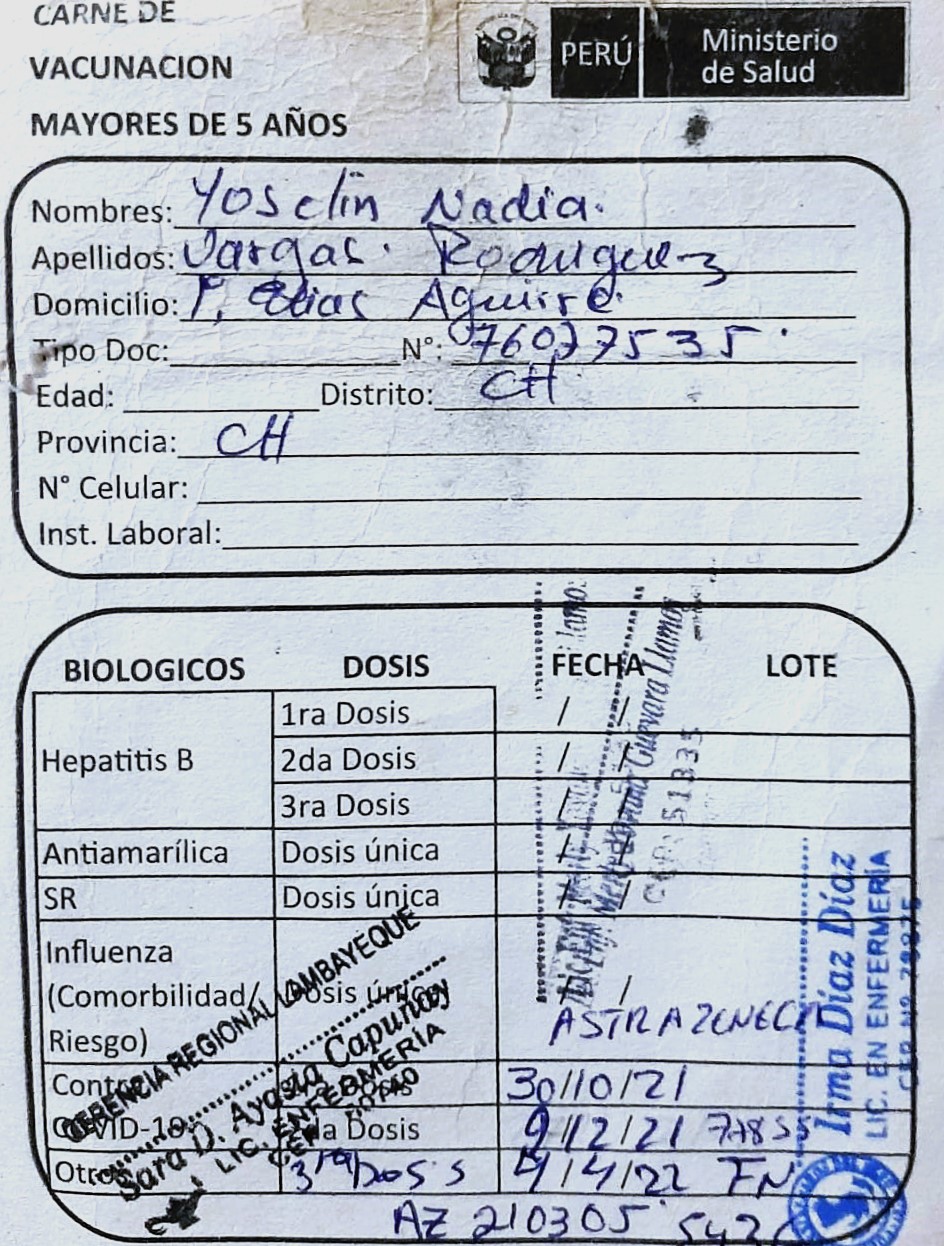 CARNE DE
VACUNACION
MAYORES DE 5 AÑOS
PERÚ Ministerio de Salud
Nombres: Yoselin Nadia.
Apellidos: Vargas Rodriguez
Domicilio: P. Elias Aguirre.
Tipo Doc: N°: 76077535
Edad: Distrito: CH
Provincia: CH
N° Celular:
Inst. Laboral:
BIOLOGICOS DOSIS FECHA LOTE
Hepatitis B
1ra Dosis / /
2da Dosis / /
3ra Dosis / /
Antiamarílica Dosis única / /
SR Dosis única / /
Influenza
(Comorbilidad/ Dosis única / /
Riesgo)
ASTRAZENECA
30/10/21
COVID-19 Dosis 9/12/21
Otros 3ra Dosis 4/4/22 FN
AZ 210305
GERENCIA REGIONAL LAMBAYEQUE
Sara D. Ayasta Capuñay
LIC. ENFERMERÍA
Guevara Llamo
51335
Irma Díaz Díaz
LIC. EN ENFERMERÍA